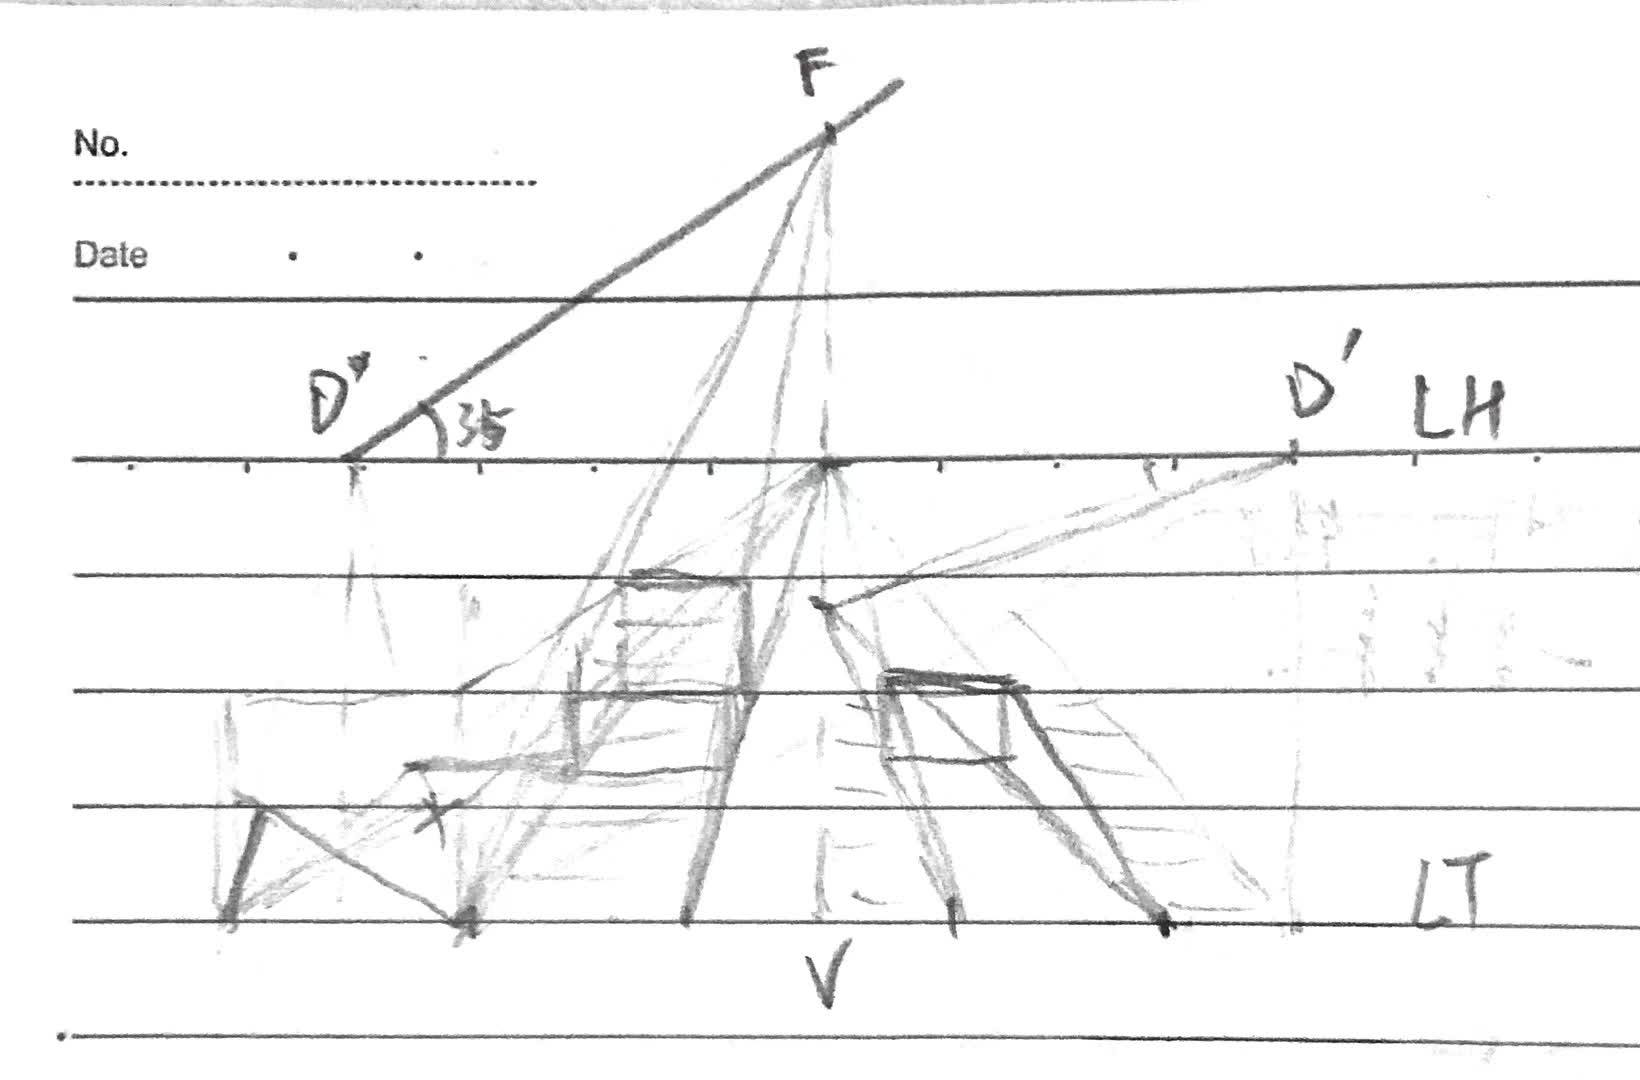 F
No.
Date
D" 35 D' LH
LT
V